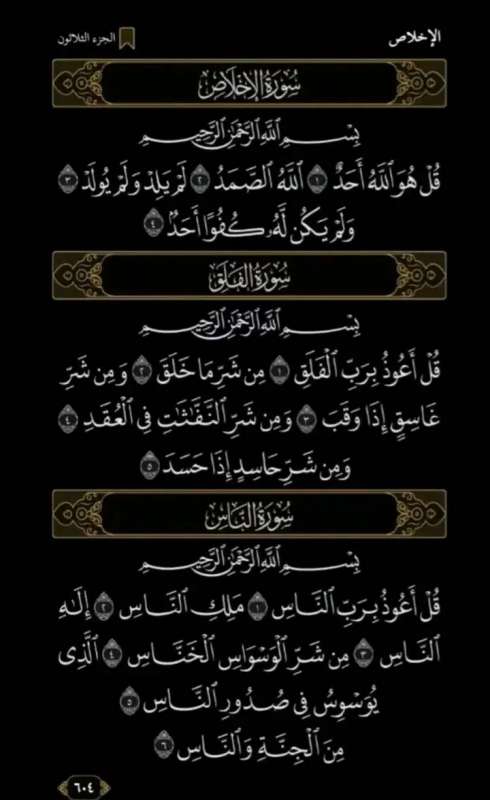 الإخلاص
الجزء الثلاثون
سُورَةُ الإِخْلَاصِ
بِسْمِ ٱللَّهِ ٱلرَّحْمَٰنِ ٱلرَّحِيمِ
قُلْ هُوَ ٱللَّهُ أَحَدٌ ١ ٱللَّهُ ٱلصَّمَدُ ٢ لَمْ يَلِدْ وَلَمْ يُولَدْ ٣
وَلَمْ يَكُن لَّهُۥ كُفُوًا أَحَدٌۢ ٤
سُورَةُ الفَلَقِ
بِسْمِ ٱللَّهِ ٱلرَّحْمَٰنِ ٱلرَّحِيمِ
قُلْ أَعُوذُ بِرَبِّ ٱلْفَلَقِ ١ مِن شَرِّ مَا خَلَقَ ٢ وَمِن شَرِّ
غَاسِقٍ إِذَا وَقَبَ ٣ وَمِن شَرِّ ٱلنَّفَّٰثَٰتِ فِي ٱلْعُقَدِ ٤
وَمِن شَرِّ حَاسِدٍ إِذَا حَسَدَ ٥
سُورَةُ النَّاسِ
بِسْمِ ٱللَّهِ ٱلرَّحْمَٰنِ ٱلرَّحِيمِ
قُلْ أَعُوذُ بِرَبِّ ٱلنَّاسِ ١ مَلِكِ ٱلنَّاسِ ٢ إِلَٰهِ
ٱلنَّاسِ ٣ مِن شَرِّ ٱلْوَسْوَاسِ ٱلْخَنَّاسِ ٤ ٱلَّذِى
يُوَسْوِسُ فِى صُدُورِ ٱلنَّاسِ ٥
مِنَ ٱلْجِنَّةِ وَٱلنَّاسِ ٦
٦٠٤